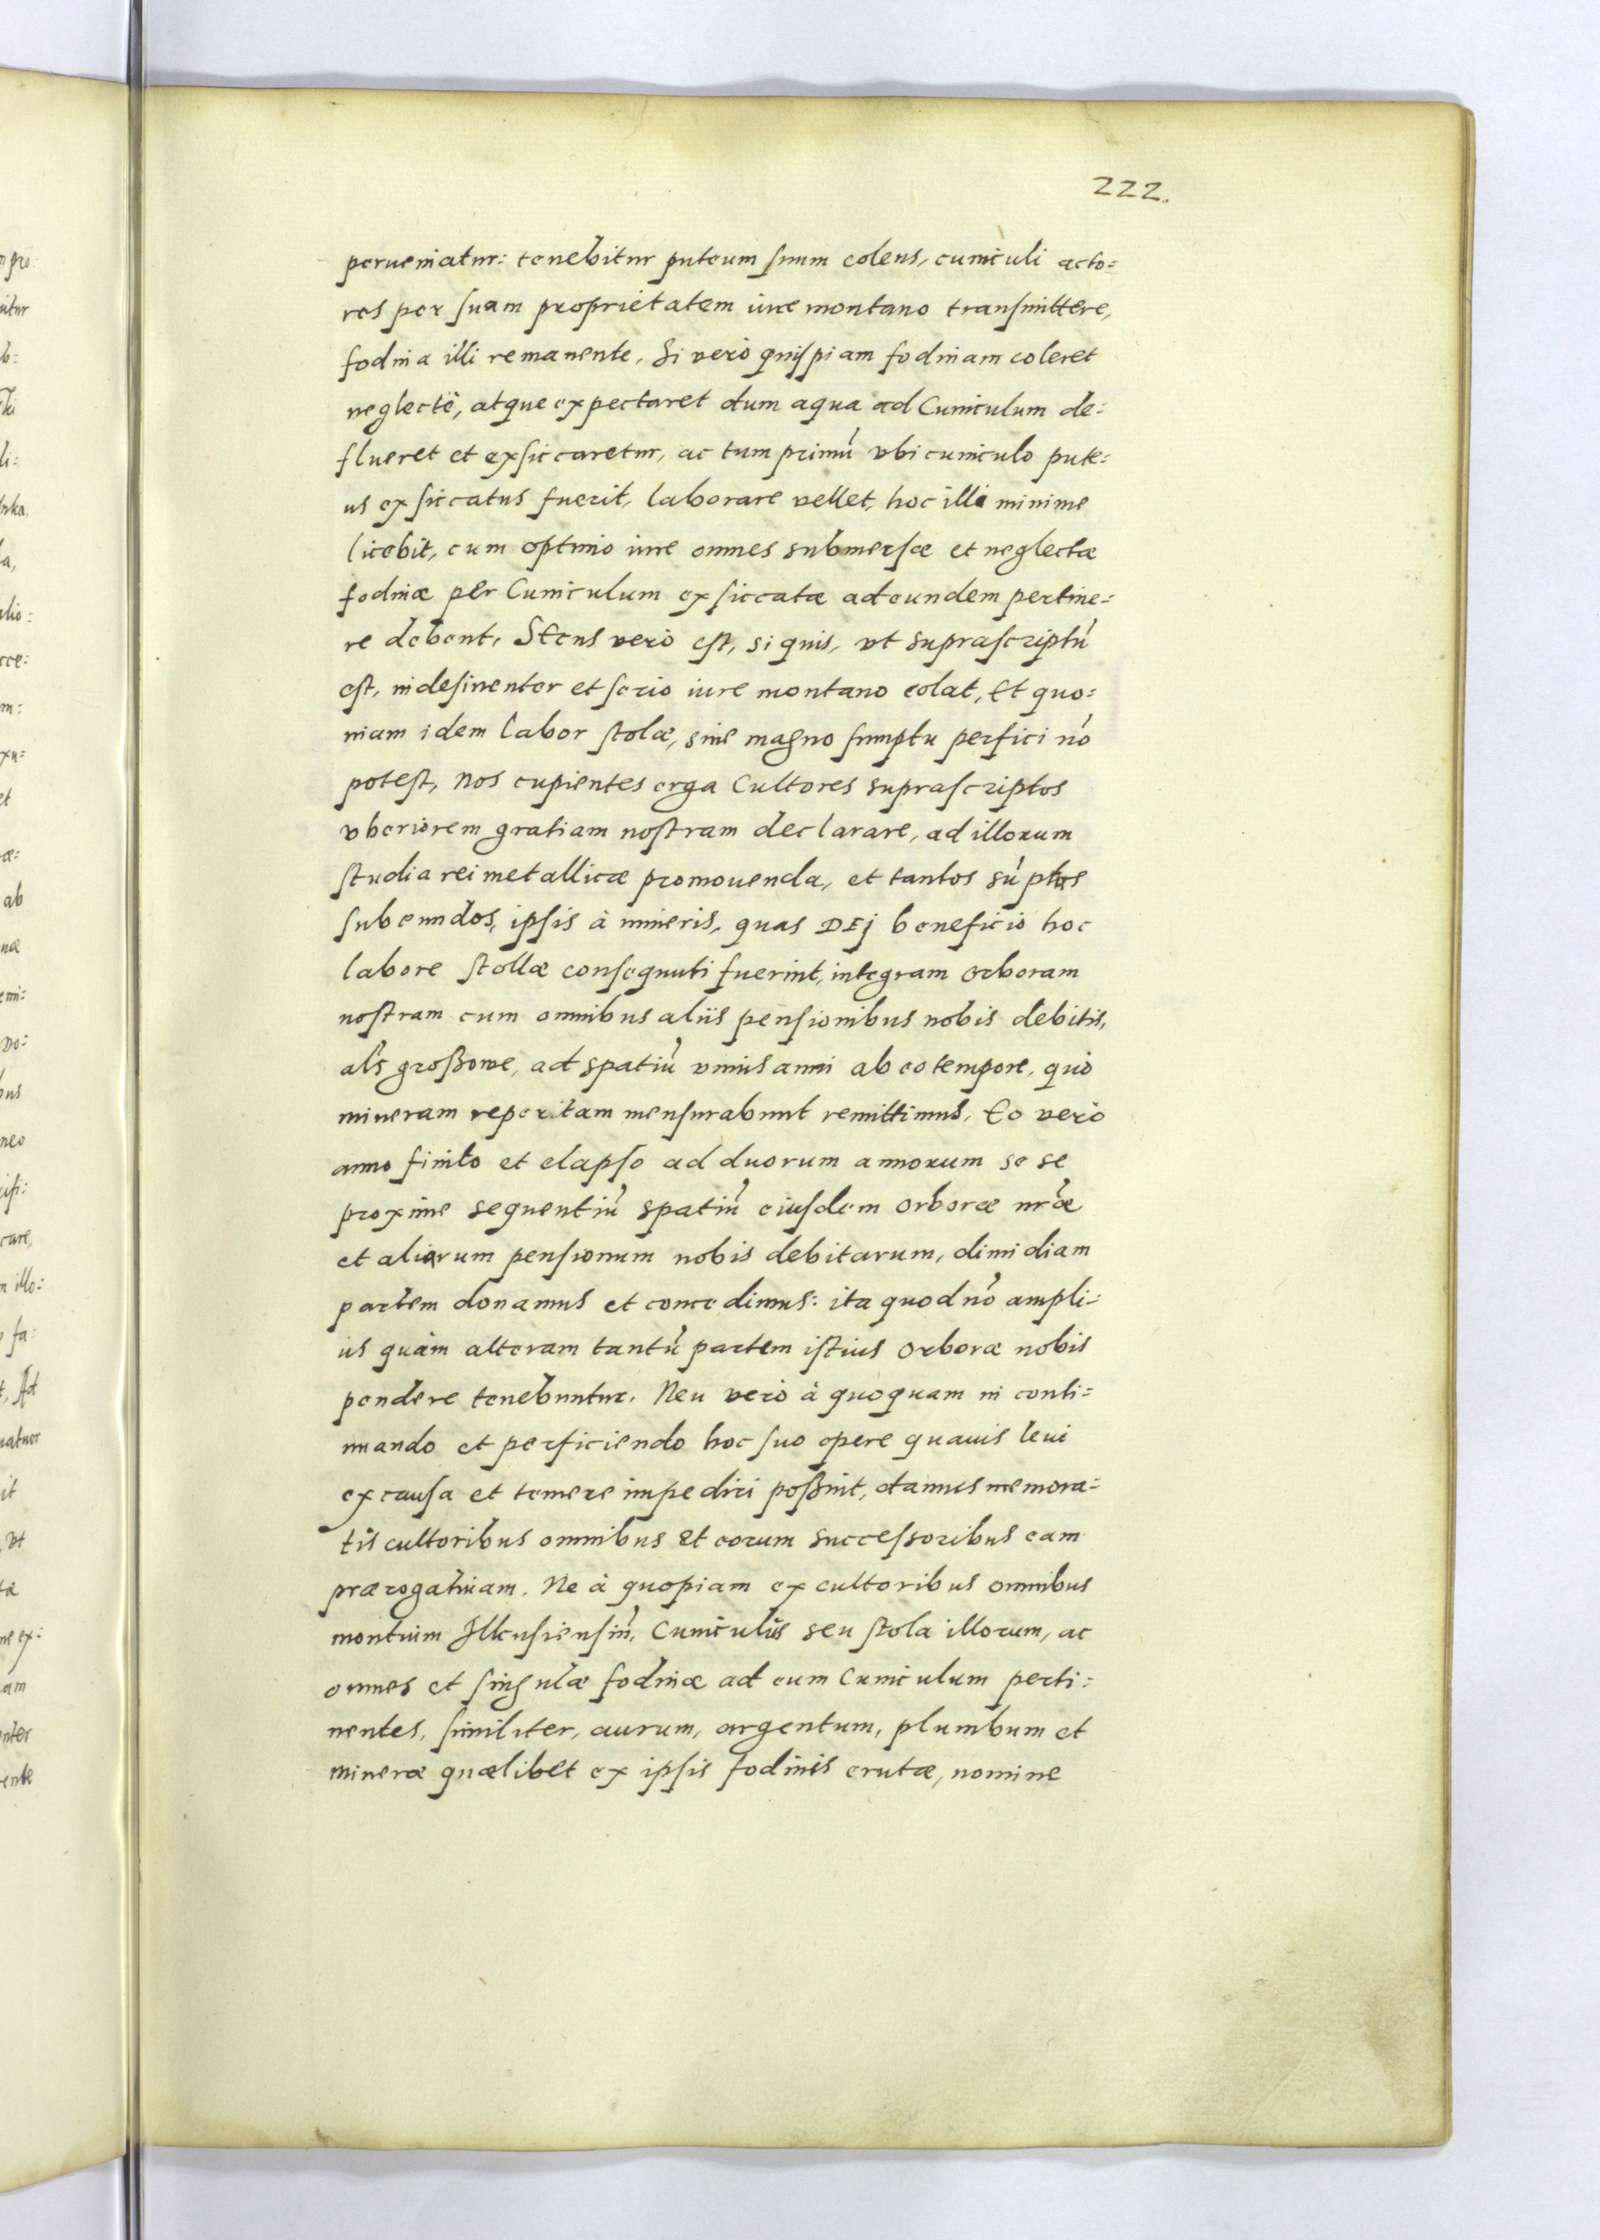 222.
perueniatur: tenebitur puteum suum colens, cuniculi acto=
res per suam proprietatem iure montano transmittere,
fodina illi remanente. Si verò quispiam fodinam coleret
neglectè, atque expectaret dum aqua ad Cuniculum de=
flueret et exsiccaretur, ac tum primū vbi cuniculo pute=
us exsiccatus fuerit, laborare vellet, hoc illi minime
licebit, cum optimo iure omnes submersæ et neglectæ
fodinæ per Cuniculum exsiccatæ ad eundem pertine=
re debent, Secus verò est, si quis, vt suprascriptū
est, indesinenter et serio iure montano colat, Et quo=
niam idem labor stolæ, sine magno sumptu perfici nō
potest, Nos cupientes erga Cultores suprascriptos
vberiorem gratiam nostram declarare, ad illorum
studia rei metallicæ promouenda, et tantos sūptus
subeundos, ipsis à mineris, quas DEJ beneficio hoc
labore stollæ consequuti fuerint, integram orboram
nostram cum omnibus aliis pensionibus nobis debitis,
als großowe, ad spatiū vnius anni ab eo tempore, quò
mineram repertam mensurabunt remittimus. Eo verò
anno finito et elapso ad duorum annorum se se
proxime sequentiū spatiū eiusdem orboræ nrāe
et aliarum pensionum nobis debitarum, dimidiam
partem donamus et concedimus: ita quod nō ampli=
us quàm alteram tantū partem istius orboræ nobis
pendere tenebuntur. Neu verò à quoquam in conti=
nuando et perficiendo hoc suo opere quauis leui
ex causa et temere impediri poßint, damus memora=
tis cultoribus omnibus et eorum successoribus eam
prærogatiuam. Ne à quopiam ex cultoribus omnibus
montium Ilkusiensiū, Cuniculus seu stola illorum, ac
omnes et singulæ fodinæ ad eum Cuniculum perti=
nentes, similiter, aurum, argentum, plumbum et
mineræ quælibet ex ipsis fodinis erutæ, nomine